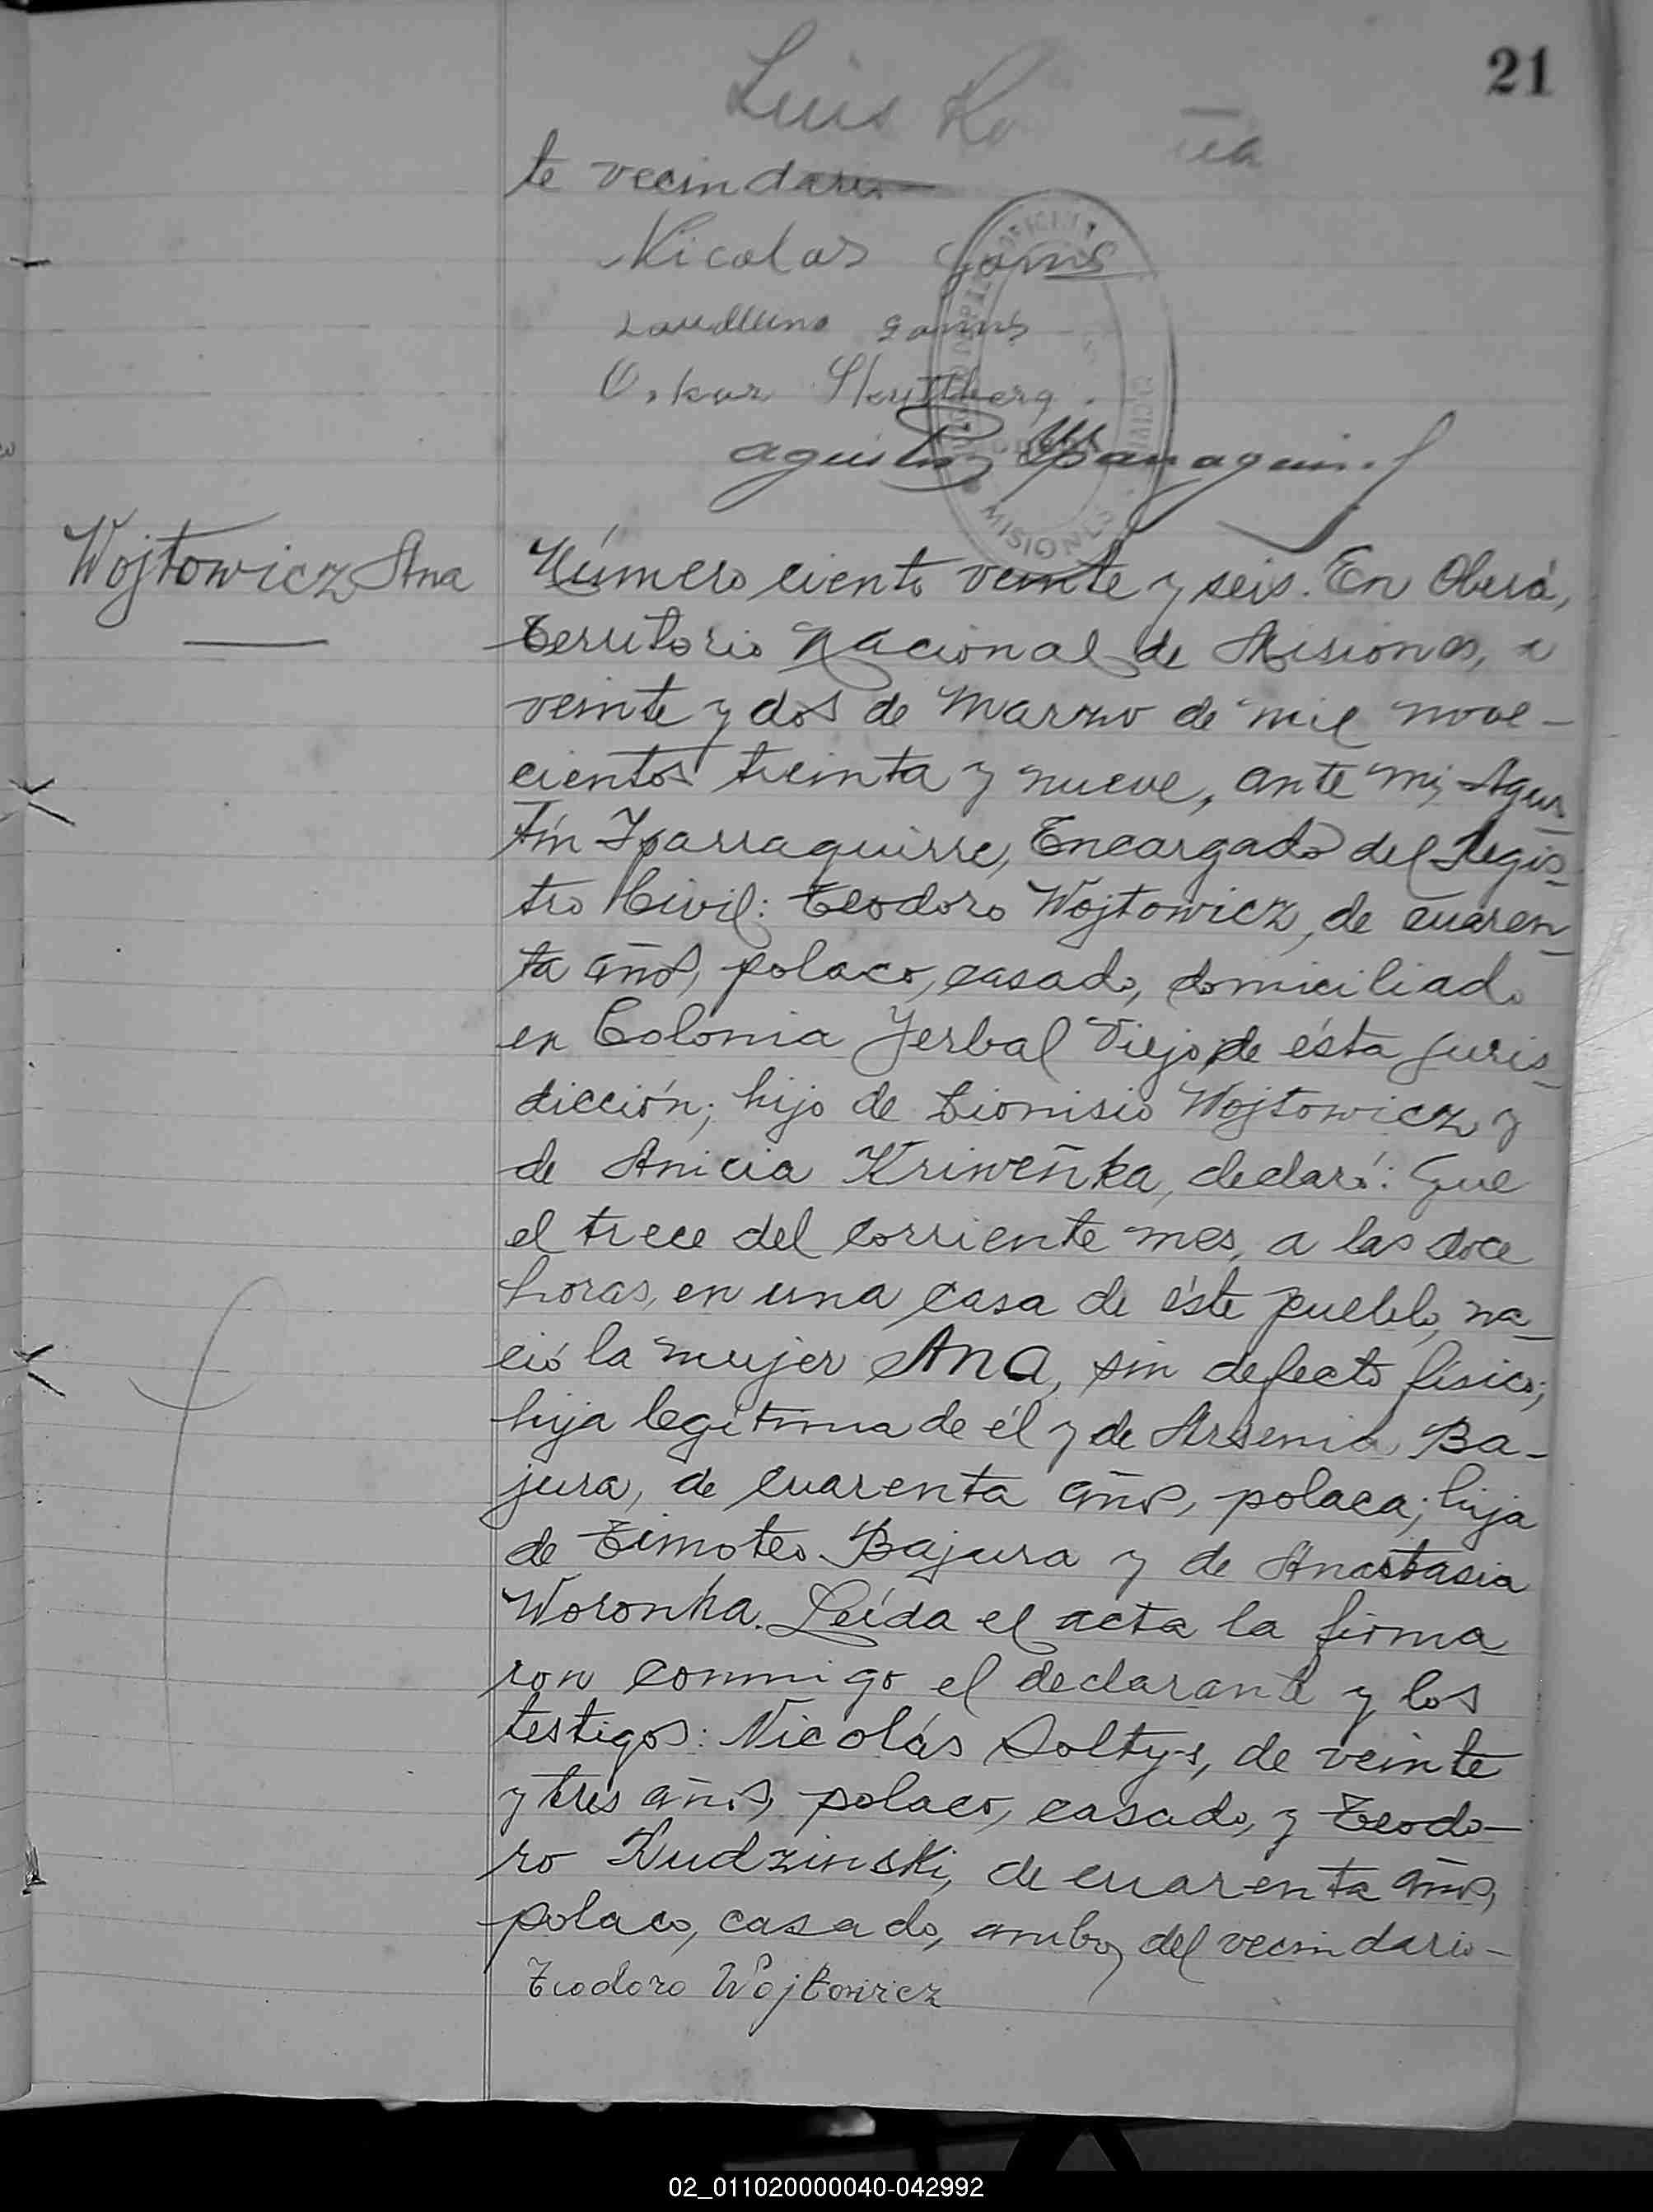 21
Luis
te vecindario
Nicolas
Oskar
MISIONES
Wojtowicz Ana
Número ciento veinte y seis. En Oberá,
Territorio Nacional de Misiones, a
veinte y dos de Marzo de mil nove-
cientos treinta y nueve, ante mi, Agus-
tín Yparraguirre, Encargado del Regis-
tro Civil: Teodoro Wojtowicz, de cuaren-
ta años, polaco, casado, domiciliado
en Colonia Yerbal Viejo, de ésta juris-
dicción; hijo de Dionisio Wojtowicz y
de Anicia Kriweñka, declaró: Que
el trece del corriente mes, a las doce
horas, en una casa de éste pueblo, na-
ció la mujer Ana, sin defecto físico;
hija legítima de él y de Arsenia Ba-
jura, de cuarenta años, polaca; hija
de Timoteo Bajura y de Anastasia
Woronka. Leída el acta la firma-
ron conmigo el declarante y los
testigos: Nicolás Soltys, de veinte
y tres años, polaco, casado, y Teodo-
ro Kudzinski, de cuarenta años,
polaco, casado, ambos del vecindario-
Teodoro Wojtowicz
02_011020000040-042992